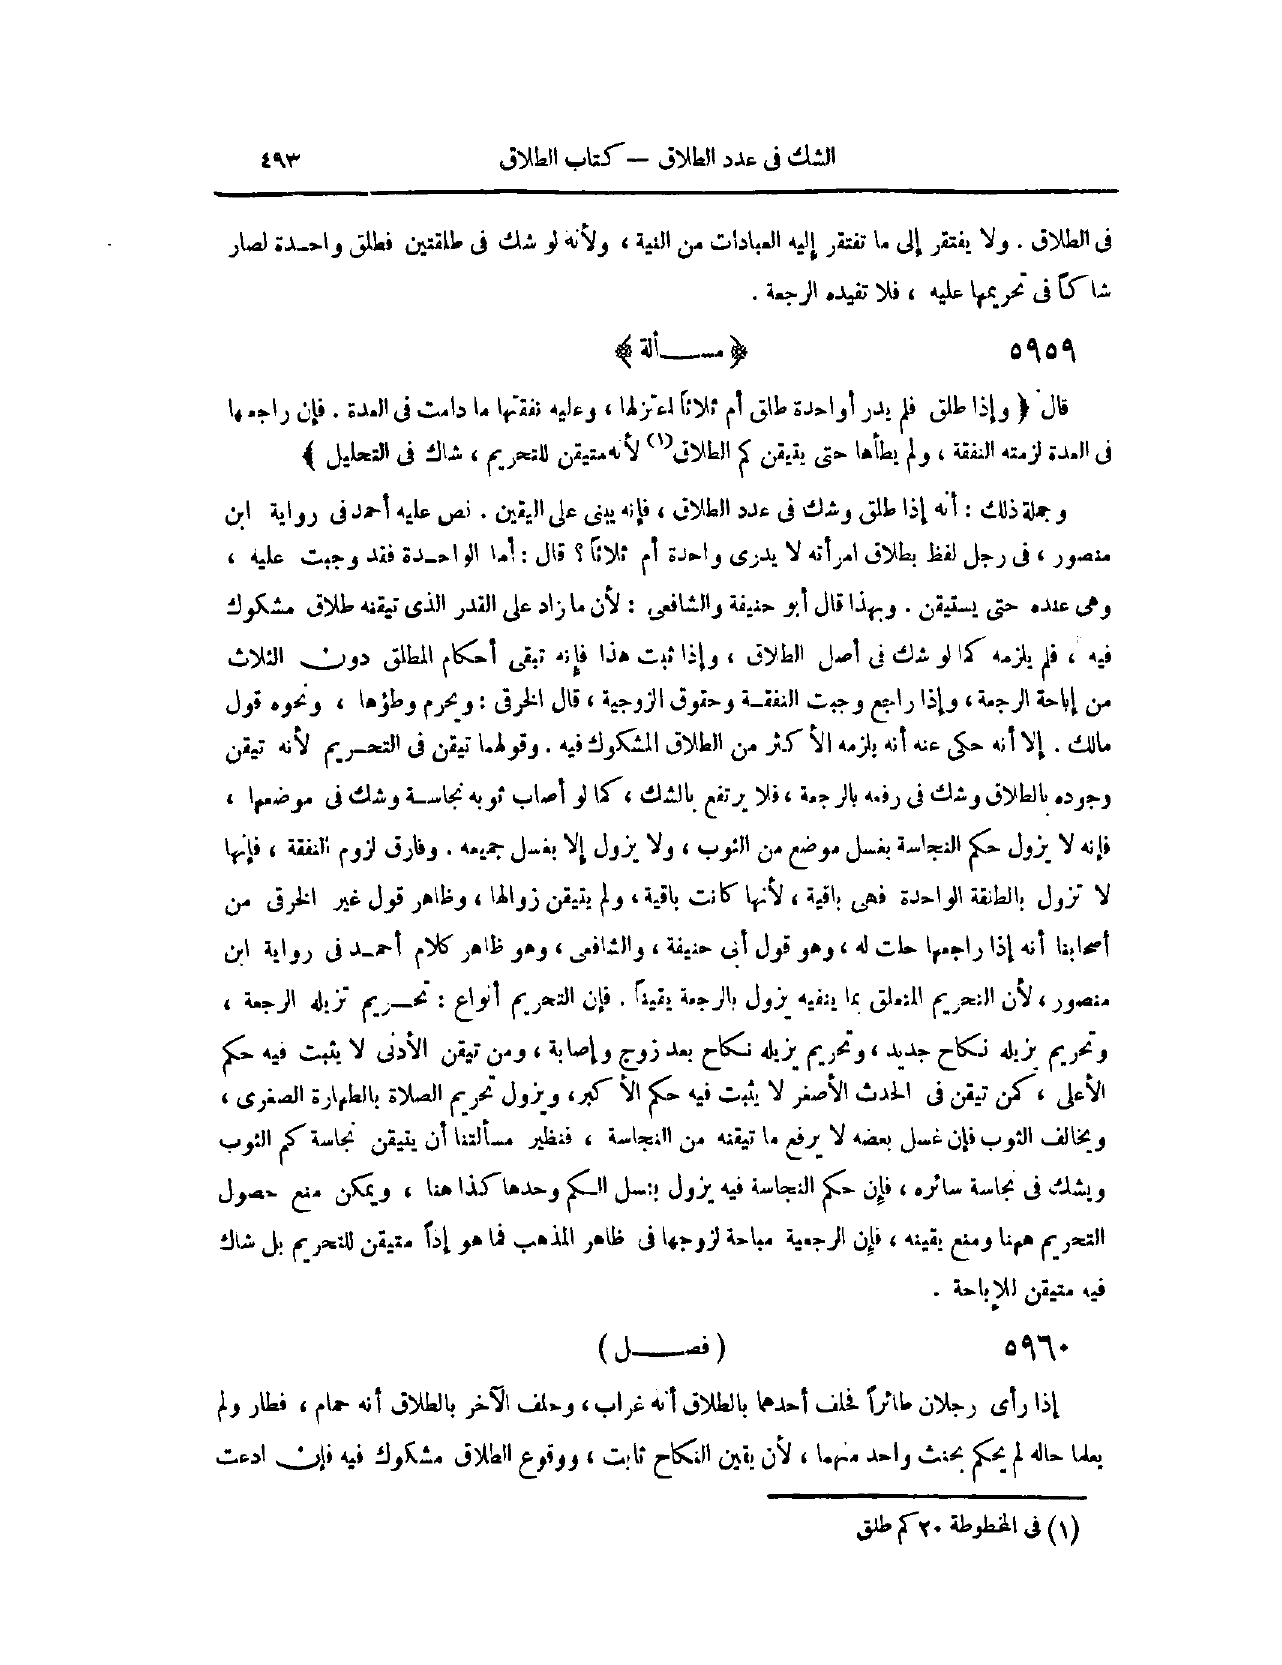 الشك فى عدد الطلاق — كتاب الطلاق ٤٩٣
فى الطلاق . ولا يفتقر إلى ما تفتقر إليه العبادات من النية ، ولأنه لو شك فى طلقتين فطلق واحدة لصار
شاكاً فى تحريمها عليه ، فلا تفيده الرجعة .
٥٩٥٩ ﴿ مسألة ﴾
قال ﴿ وإذا طلق فلم يدر أواحدة طلق أم ثلاثاً اعتزلها ، وعليه نفقتها ما دامت فى العدة . فإن راجعها
فى العدة لزمته النفقة ، ولم يطأها حتى يتيقن كم الطلاق(١) لأنه متيقن للتحريم ، شاك فى التحليل ﴾
وجملة ذلك : أنه إذا طلق وشك فى عدد الطلاق ، فإنه يبنى على اليقين . نص عليه أحمد فى رواية ابن
منصور ، فى رجل لفظ بطلاق امرأته لا يدرى واحدة أم ثلاثاً ؟ قال : أما الواحدة فقد وجبت عليه ،
وهى عنده حتى يستيقن . وبهذا قال أبو حنيفة والشافعى : لأن ما زاد على القدر الذى تيقنه طلاق مشكوك
فيه ، فلم يلزمه كما لو شك فى أصل الطلاق ، وإذا ثبت هذا فإنه تبقى أحكام المطلق دون الثلاث
من إباحة الرجعة ، وإذا راجع وجبت النفقة وحقوق الزوجية ، قال الخرقى : ويحرم وطؤها ، ونحوه قول
مالك . إلا أنه حكى عنه أنه يلزمه الأكثر من الطلاق المشكوك فيه . وقولهما تيقن فى التحريم لأنه تيقن
وجوده بالطلاق وشك فى رفعه بالرجعة ، فلا يرتفع بالشك ، كما لو أصاب ثوبه نجاسة وشك فى موضعها ،
فإنه لا يزول حكم النجاسة بغسل موضع من الثوب ، ولا يزول إلا بغسل جميعه . وفارق لزوم النفقة ، فإنها
لا تزول بالطلقة الواحدة فهى باقية ، لأنها كانت باقية ، ولم يتيقن زوالها ، وظاهر قول غير الخرقى من
أصحابنا أنه إذا راجعها حلت له ، وهو قول أبى حنيفة ، والشافعى ، وهو ظاهر كلام أحمد فى رواية ابن
منصور ، لأن التحريم المتعلق بما ينفيه يزول بالرجعة يقيناً . فإن التحريم أنواع : تحريم تزيله الرجعة ،
وتحريم يزيله نكاح جديد ، وتحريم يزيله نكاح بعد زوج وإصابة ، ومن تيقن الأدنى لا يثبت فيه حكم
الأعلى ، كمن تيقن فى الحدث الأصغر لا يثبت فيه حكم الأكبر ، ويزول تحريم الصلاة بالطهارة الصغرى ،
ويخالف الثوب فإن غسل بعضه لا يرفع ما تيقنه من النجاسة ، فنظير مسألتنا أن يتيقن نجاسة كم الثوب
ويشك فى نجاسة سائره ، فإن حكم النجاسة فيه يزول بغسل الكم وحدها كذا هنا ، ويمكن منع حصول
التحريم ههنا ومنع يقينه ، فإن الرجعية مباحة لزوجها فى ظاهر المذهب فما هو إذاً متيقن للتحريم بل شاك
فيه متيقن للإباحة .
٥٩٦٠ ( فصل )
إذا رأى رجلان طائراً فحلف أحدهما بالطلاق أنه غراب ، وحلف الآخر بالطلاق أنه حمام ، فطار ولم
يعلما حاله لم يحكم بحنث واحد منهما ، لأن يقين النكاح ثابت ، ووقوع الطلاق مشكوك فيه فإن ادعت
(١) فى المخطوطة ٢٠ كم طلق